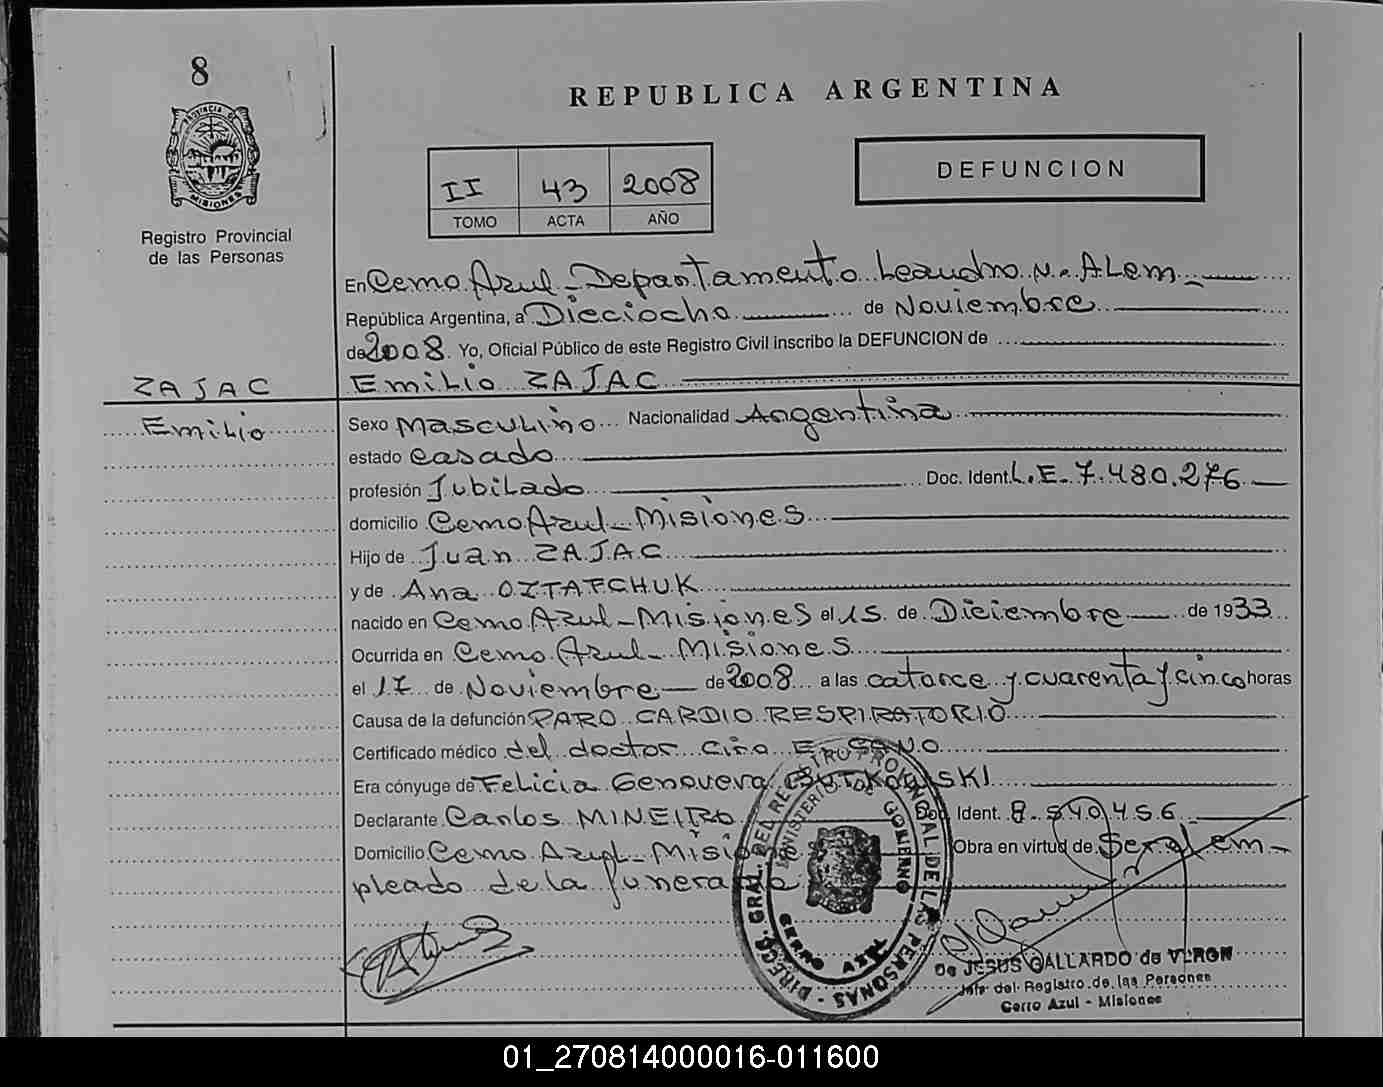 8
REPUBLICA ARGENTINA
II 43 2008
TOMO ACTA AÑO
DEFUNCION
PROVINCIA DE
MISIONES
Registro Provincial
de las Personas
En Cerro Azul - Departamento Leandro N. ALem
República Argentina, a Dieciocho de Noviembre
de 2008. Yo, Oficial Público de este Registro Civil inscribo la DEFUNCION de
ZAJAC
Emilio ZAJAC
Emilio
Sexo Masculino Nacionalidad Argentina
estado casado
profesión Jubilado Doc. Ident. L.E. 7.480.276
domicilio Cerro Azul - Misiones
Hijo de Juan ZAJAC
y de Ana
nacido en Cerro Azul - Misiones el 15 de Diciembre de 1933
Ocurrida en Cerro Azul - Misiones
el 17 de Noviembre de 2008 a las catorce y cuarenta y cinco horas
Causa de la defunción PARO CARDIO RESPIRATORIO
Certificado médico del doctor Ciro E.
Era cónyuge de Felicia Genoveva
Declarante Carlos MINEIRO Doc. Ident. 8.540.456
Domicilio Cerro Azul - Misio Obra en virtud de Ser el em-
pleado de la funeraria
DIRECC. GRAL. DEL REGISTRO PROVINCIAL DE LAS PERSONAS
MINISTERIO DE GOBIERNO
CERRO AZUL
De JESUS GALLARDO de VERON
Jefe del Registro de las Personas
Cerro Azul - Misiones
01_270814000016-011600